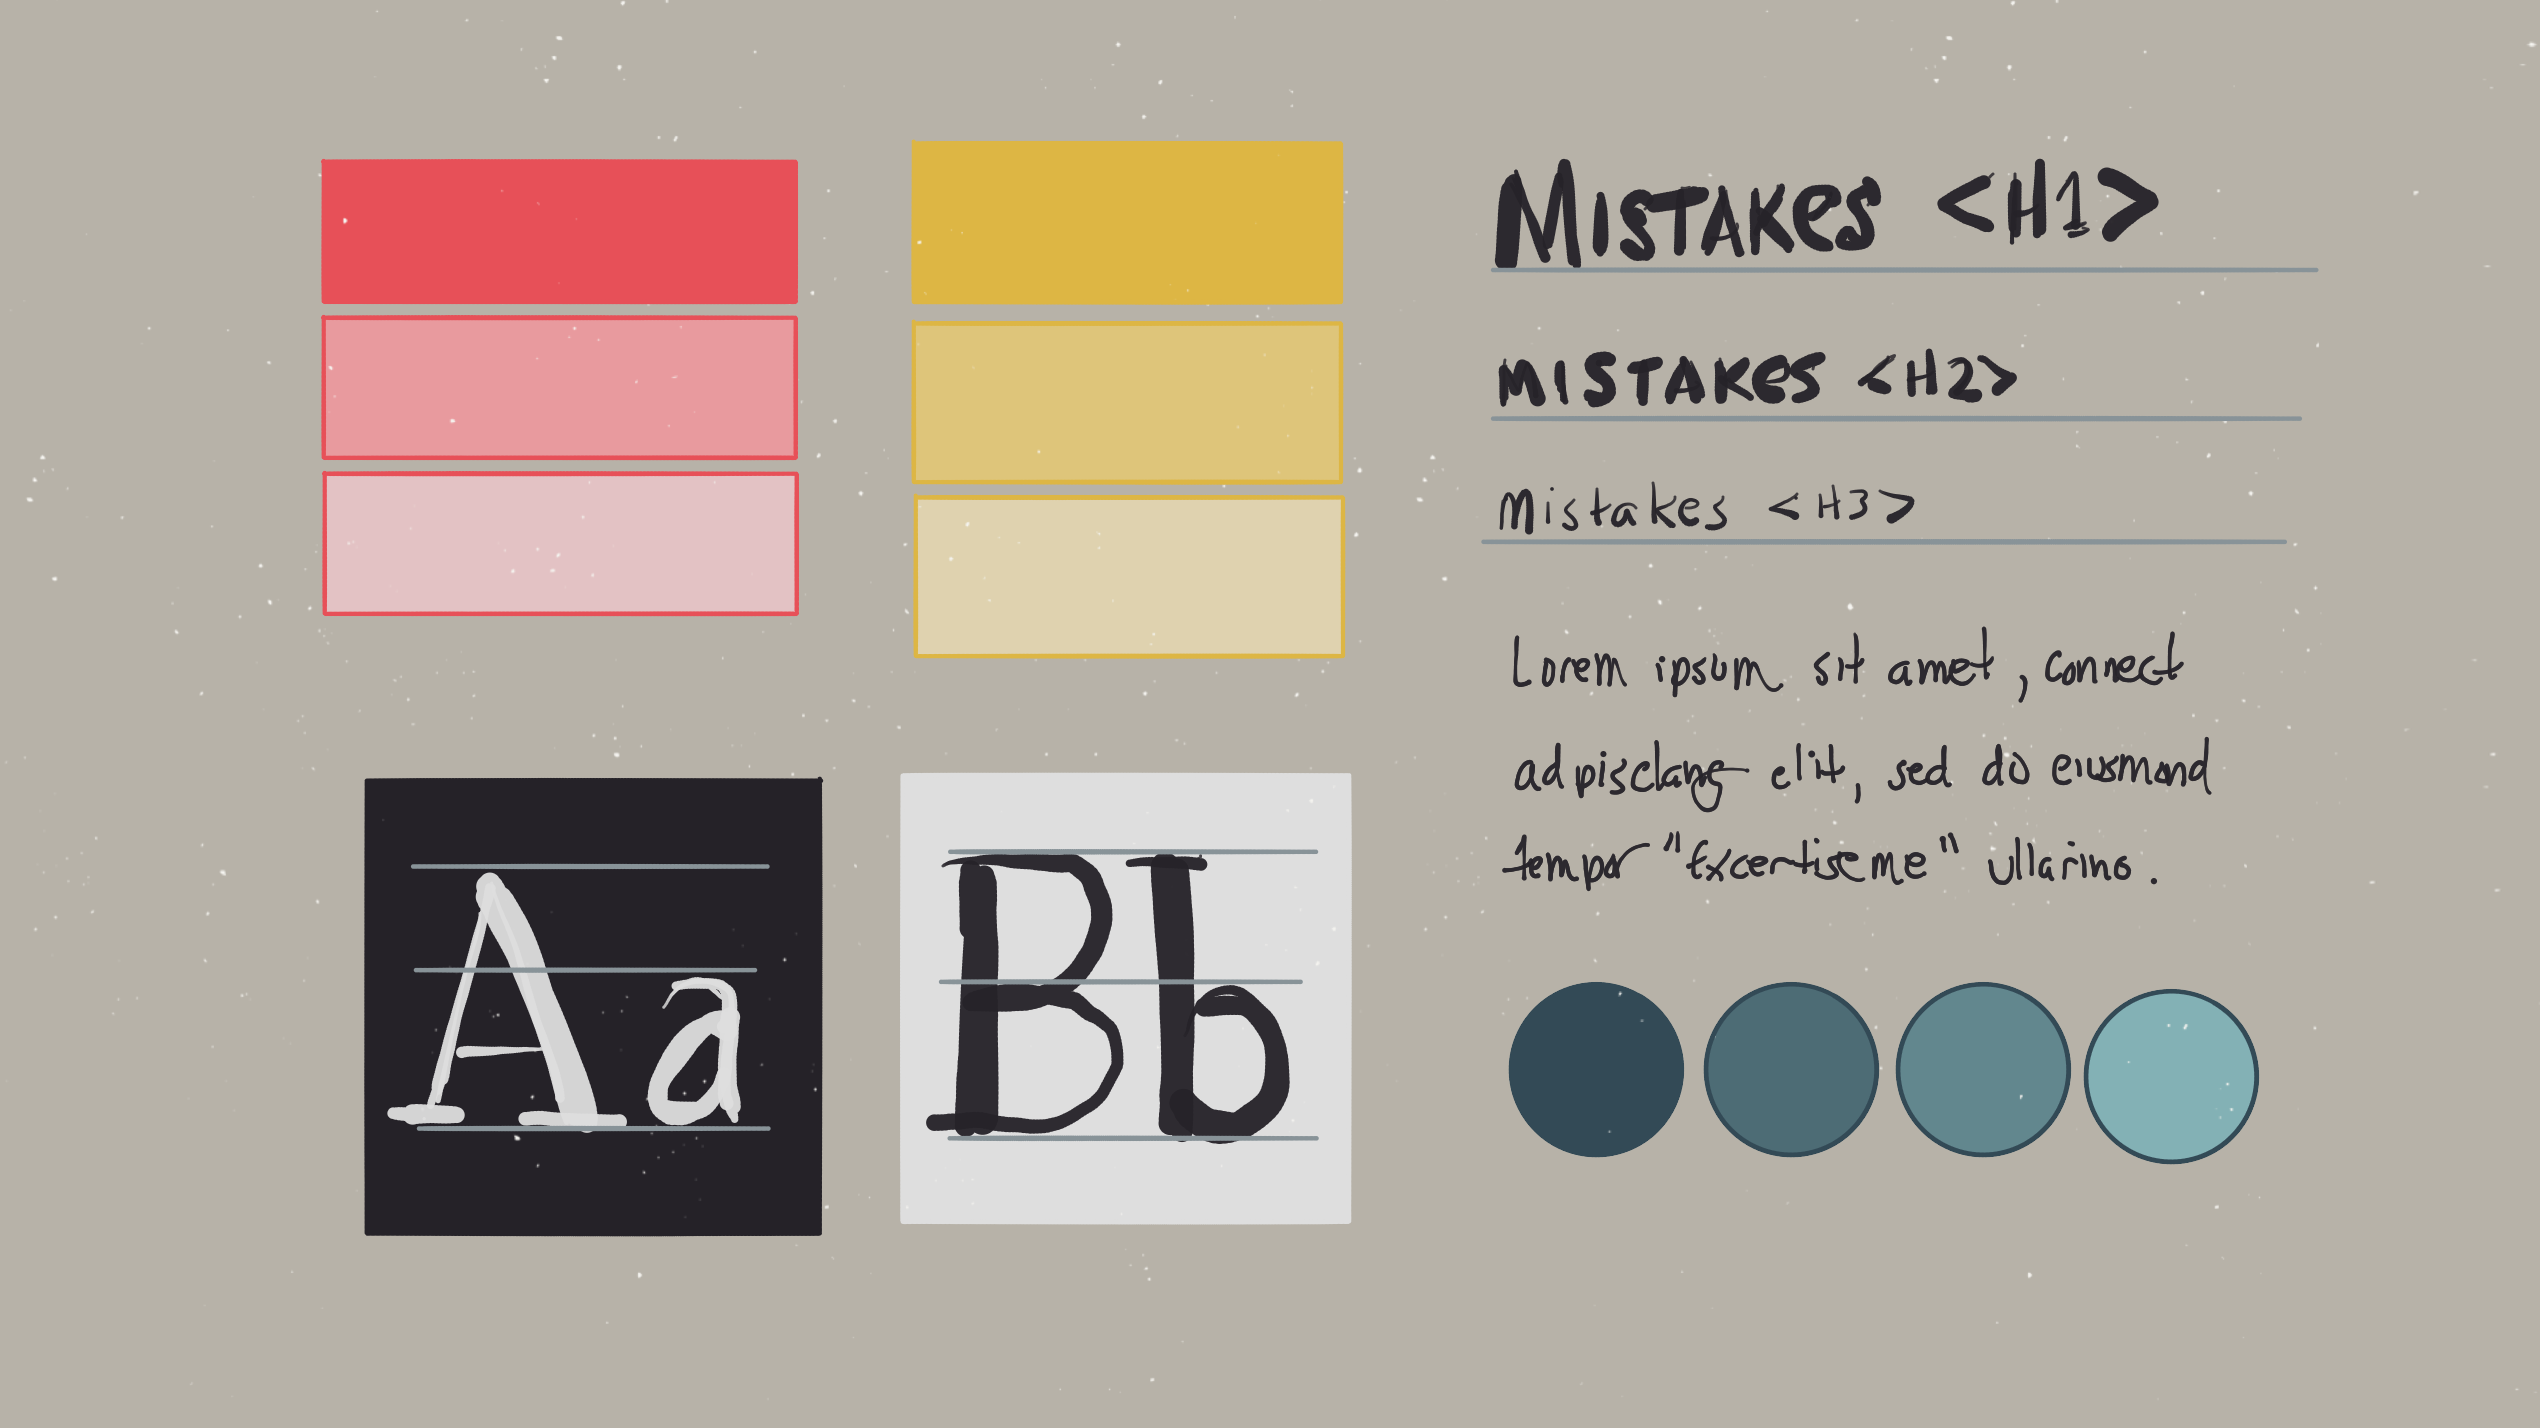 Mistakes <H1>
Mistakes <H2>
Mistakes <H3>
Lorem ipsum sit amet, connect
adpisclang elit, sed do eiusmond
tempor "Excertiseme" ullarino.
Aa
Bb